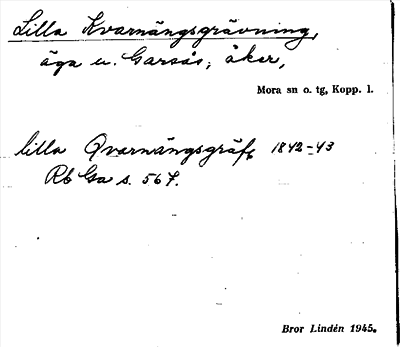 Lilla Kvarnängsgrävning,
äga u. Garsås; åker,
Mora sn o. tg, Kopp. l.
lilla Qvarnängsgräfg 1842-43
Rb Ga s. 567.
Bror Lindén 1945.